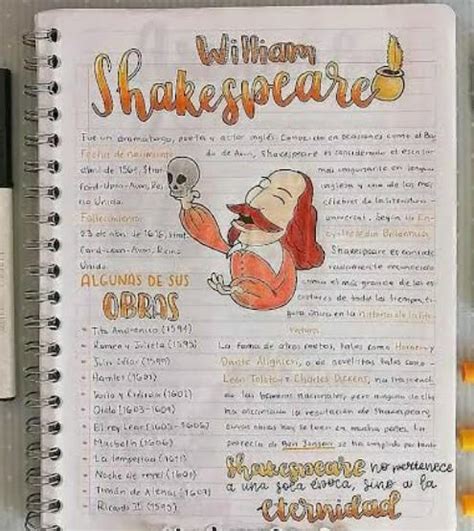 William
Shakespeare
Fue un dramaturgo, poeta y actor inglés. Conocido en ocasiones como el Bar
Fecha de nacimiento
do de Avon, Shakespeare es considerado el escritor
abril de 1564, Strat
más importante en lengua
ford-Upon-Avon, Rei
inglesa y uno de los más
no Unido.
célebres de la literatura
Fallecimiento:
universal. Según la En
23 de abr. de 1616, Strat
ciclopedia Britannica
ford-Upon-Avon, Reino
Shakespeare es
Unido
reconocido
ALGUNAS DE SUS
como el más grande de los es
OBRAS
critores de todos los tiempos,
única en la historia de la lite
ratura.
• Tito Andrónico (1594)
• Romeo y Julieta (1595)
La fama de otros poetas, tales como Homero y
• Julio César (1599)
Dante Alighieri, o de novelistas tales como
• Hamlet (1601)
León Tolstoi y Charles Dickens, ha
• Troilo y Crésida (1602)
de las barreras nacionales, pero ninguno de ellos
• Otelo (1603-1604)
ha alcanzado la reputación de Shakespeare,
• El rey Lear (1605-1606)
cuyas obras hoy se leen en muchos países. La
• Macbeth (1606)
profecía de Ben Jonson se ha cumplido por tanto
• La tempestad (1611)
Shakespeare no pertenece
• Noche de reyes (1601)
a una sola época, sino a la
• Timón de Atenas (1607)
eternidad
• Ricardo II (1595)